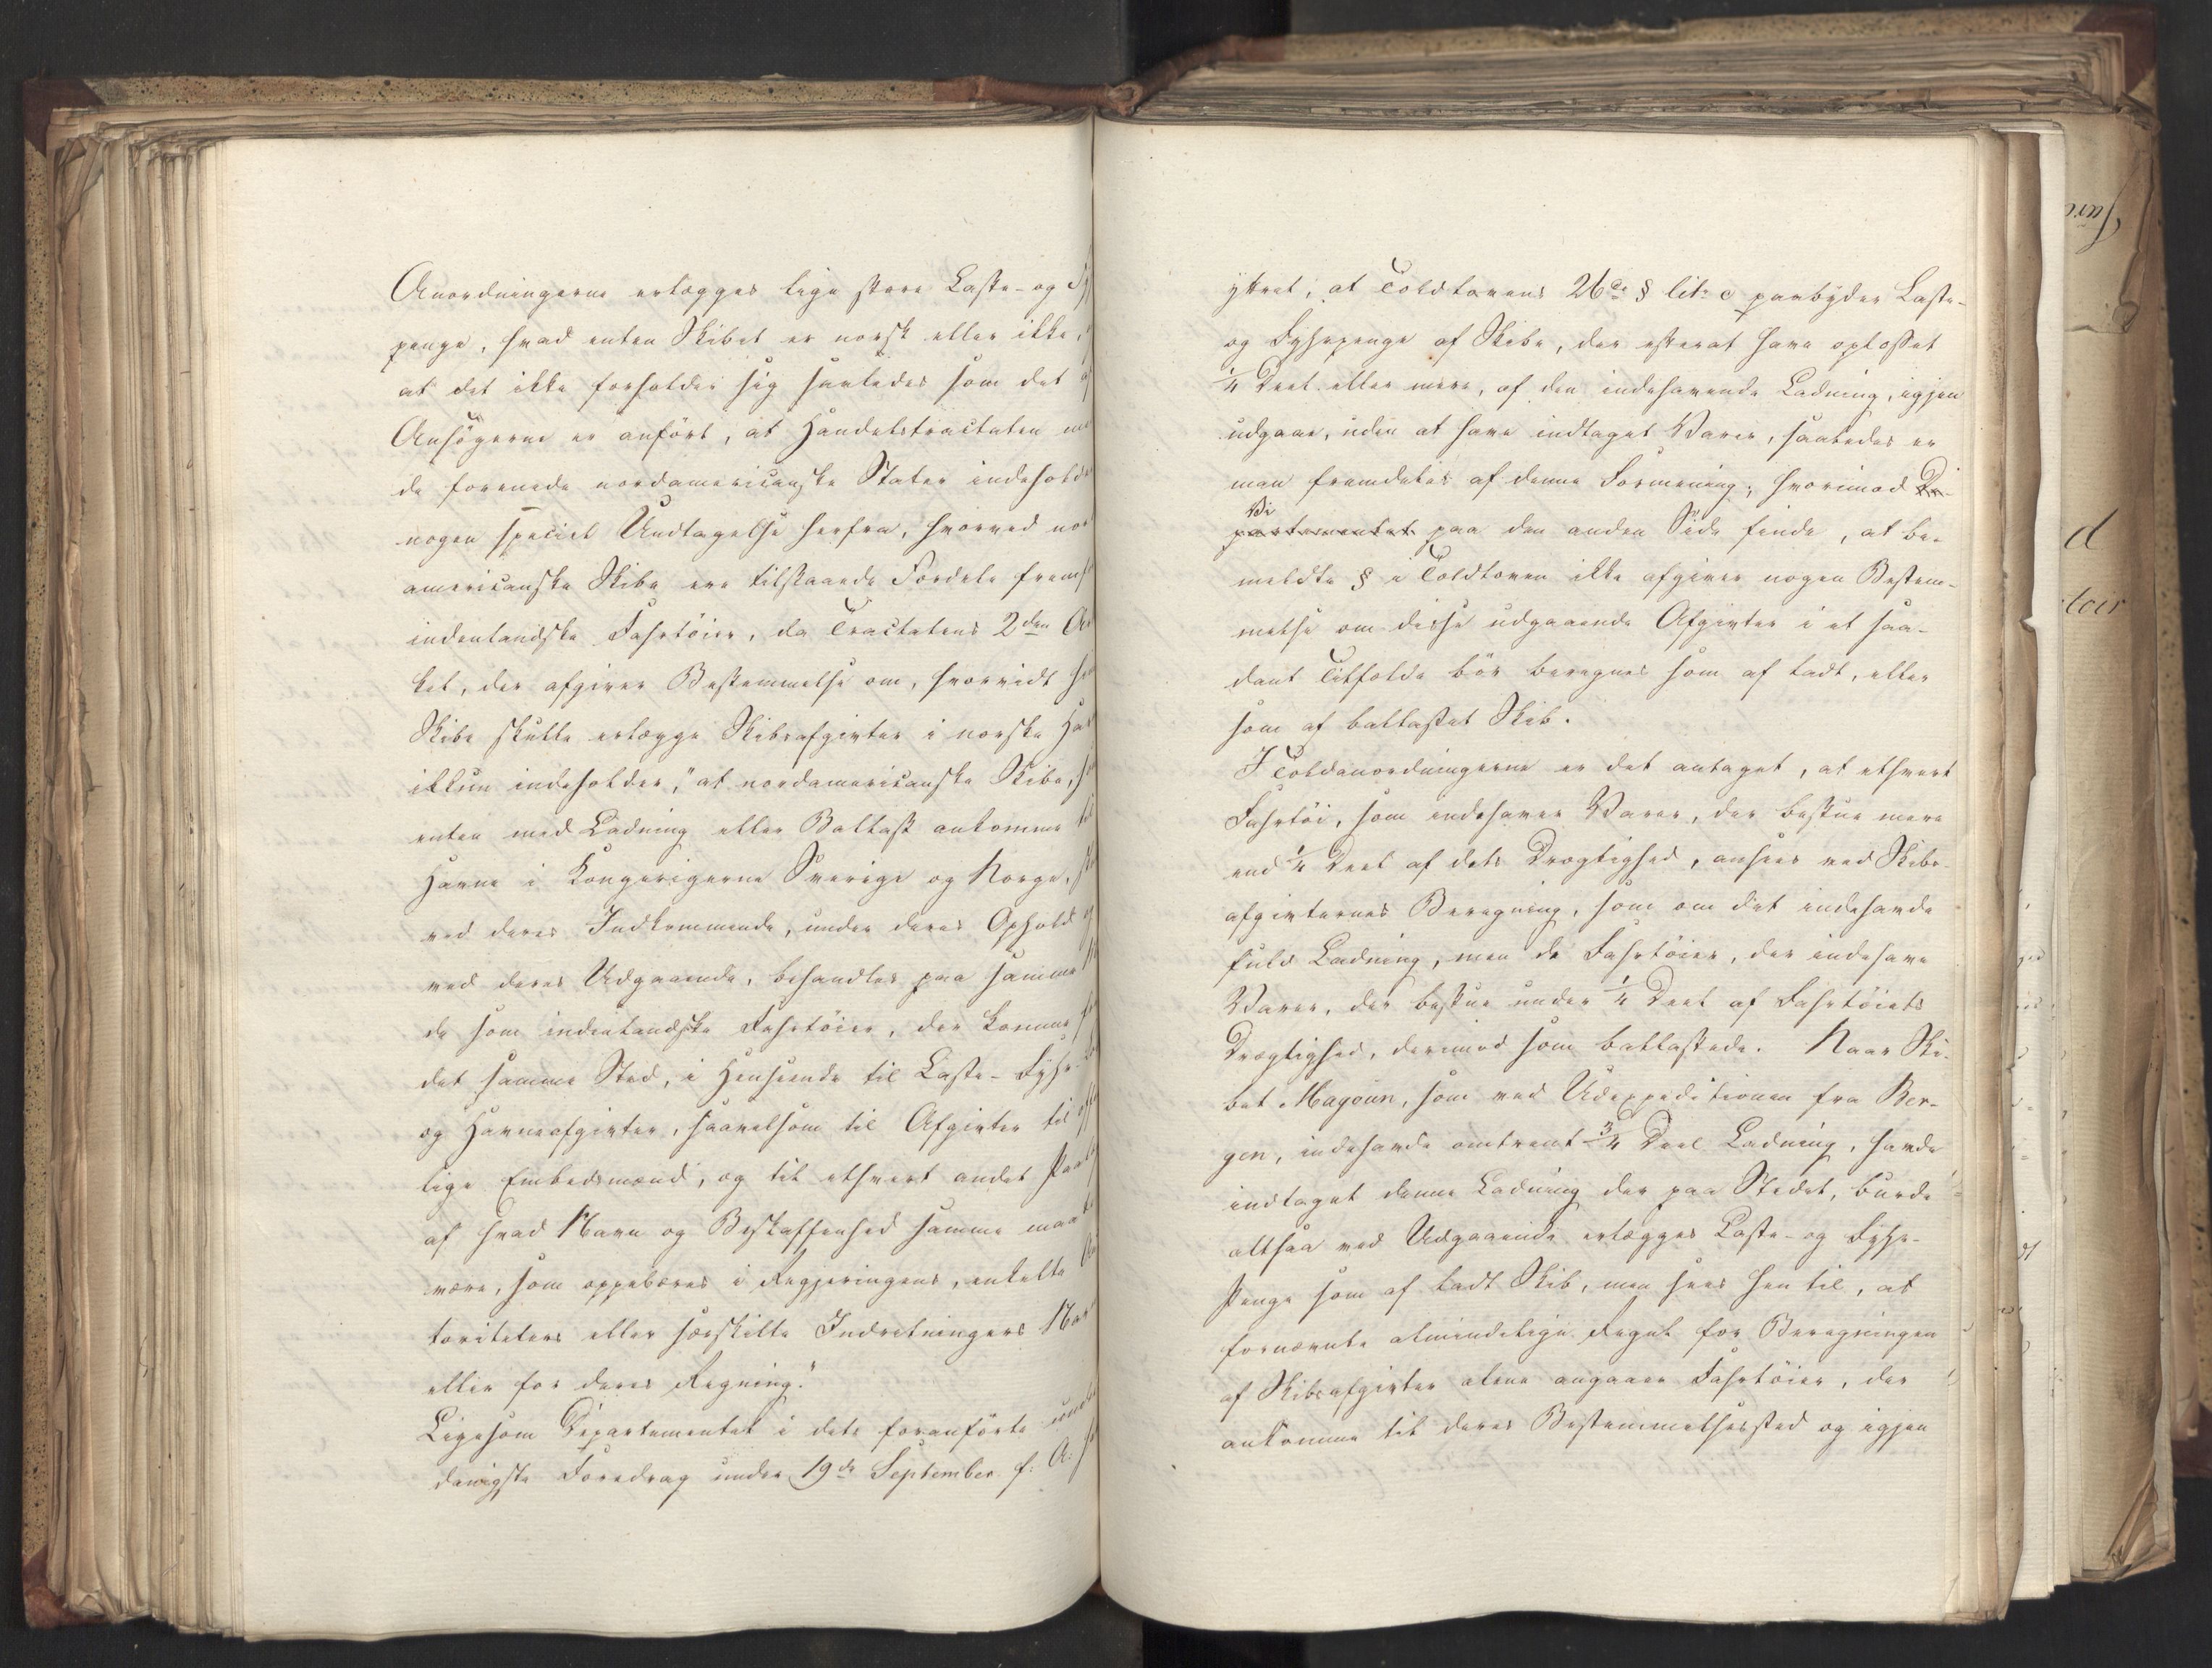 Anordningerne erlægges lige store Laste- og Fy
penge, hvad enten Skibet er norsk eller ikke,
at det ikke forholder sig saaledes som det af
Ansögerne er anfört, at Handelstractaten me
de forenede nordamericanske Stater indehold
nogen speciel Undtagelse herfra, hvorved nor
americanske Skibe ere tilstaaede Fordele fremf
indenlandske Fahrtöier, da Tractatens 2den Ar
kel, der afgiver Bestemmelse om, hvorvidt
Skibe skulle erlægge Skibsafgivter i norske Hav
ikkun indeholder, "at nordamericanske Skibe,
enten med Ladning eller Ballast ankomme til
Havne i Kongerigerne Sverige og Norge, sk
ved deres Indkommende, under deres Ophold og
ved deres Udgaaende, behandles paa samme
de som indenlandske Fahrtöier, der komme fra
det samme Sted, i Henseende til Laste- Fyhr-
og Havneafgivter, saavelsom til Afgivter til off
lige Embedsmænd, og til ethvert andet
af hvad Navn og Beskaffenhed samme maat
være, som oppebæres i Regjeringens, enkelte Au
toriteters eller særskilte Indretningers Nav
eller for deres Regning."
Ligesom Departementet i dets foranförte under
danigste Foredrag under 19de September f: A. h
yttret, at Toldlovens 26de § lit: c paabyder Laste-
og Fyhrpenge af Skibe, der efterat have oplosset
1/4 Deel eller mere, af den indehavende Ladning, igjen
udgaae, uden at have indtaget Varer, saaledes er
man fremdeles af denne Formening; hvorimod De-
Vi
partementet paa den anden Side finde, at be-
meldte § i Toldloven ikke afgiver nogen Bestem-
melse om disse udgaaende Afgivter i et saa-
dant Tilfælde bör beregnes som af ladt, eller
som af ballastet Skib.
I Toldanordningerne er det antaget, at ethvert
Fahrtöi, som indehaver Varer, der bestaae mere
end 1/4 Deel af dets Drægtighed, ansees ved Skibs-
afgivternes Beregning, som om det indehavde
fuld Ladning, men de Fahrtöier, der indehave
Varer, der bestaae under 1/4 Deel af Fahrtöiets
Drægtighed, derimod som ballastede. Naar Ski-
bet Magoun, som ved Udexpeditionen fra Ber-
gen, indehavde omtrent 3/4 Deel Ladning, havde
indtaget denne Ladning der paa Stedet, burde
altsaa ved Udgaaende erlægges Laste- og Fyhr-
Penge som af ladt Skib, men sees hen til, at
fornævnte almindelige Regel for Beregningen
af Skibsafgivter alene angaaer Fahrtöier, der
ankomme til deres Bestemmelsessted og igjen